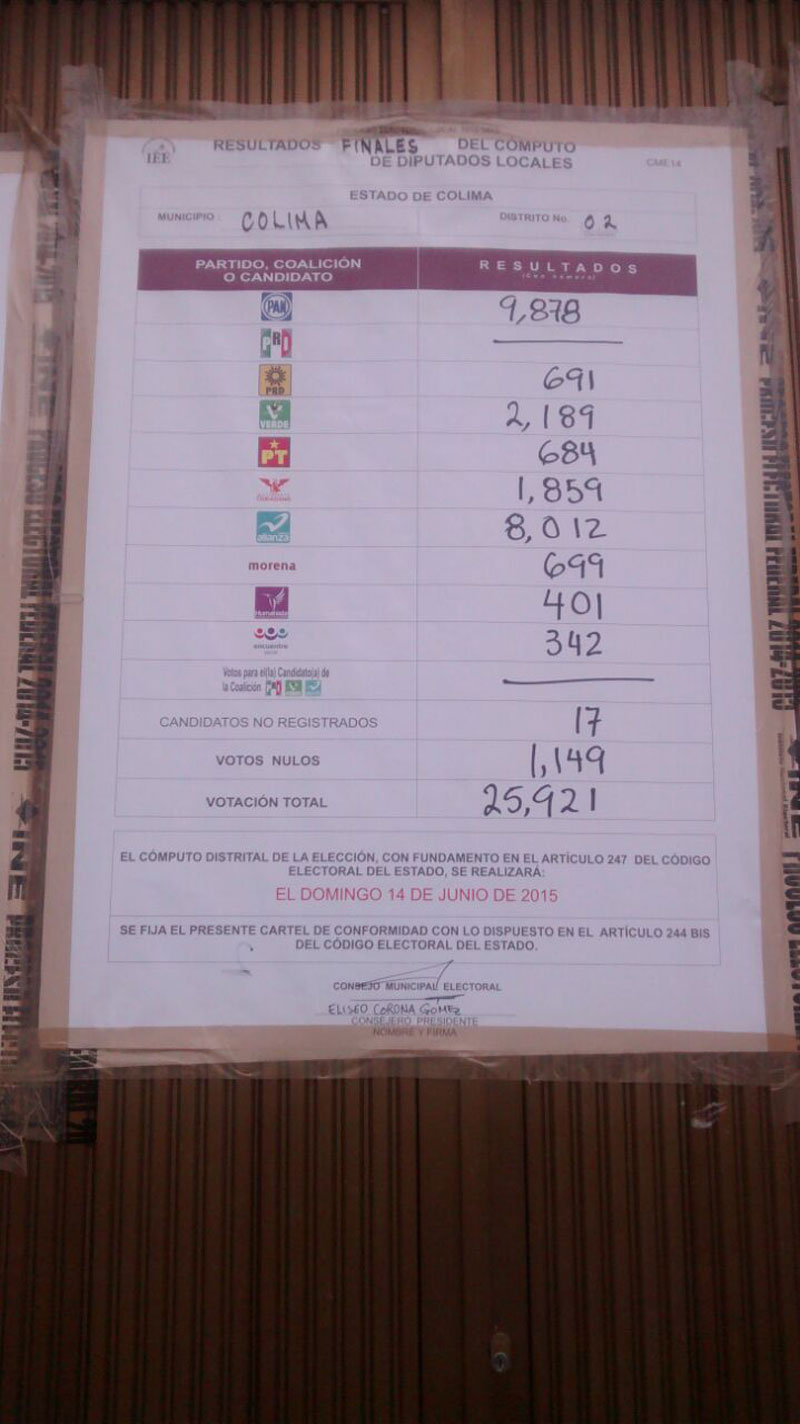 IEE
RESULTADOS FINALES DEL CÓMPUTO
DE DIPUTADOS LOCALES
CME.14
ESTADO DE COLIMA
MUNICIPIO: COLIMA DISTRITO No. 02
PARTIDO, COALICIÓN O CANDIDATO RESULTADOS
(Con número)
PAN 9,878
PRI
PRD 691
VERDE 2,189
PT 684
CIUDADANO 1,859
alianza 8,012
morena 699
Humanista 401
encuentro social 342
Votos para el(la) Candidato(a) de
la Coalición PRI
CANDIDATOS NO REGISTRADOS 17
VOTOS NULOS 1,149
VOTACIÓN TOTAL 25,921
EL CÓMPUTO DISTRITAL DE LA ELECCIÓN, CON FUNDAMENTO EN EL ARTÍCULO 247 DEL CÓDIGO
ELECTORAL DEL ESTADO, SE REALIZARÁ:
EL DOMINGO 14 DE JUNIO DE 2015
SE FIJA EL PRESENTE CARTEL DE CONFORMIDAD CON LO DISPUESTO EN EL ARTÍCULO 244 BIS
DEL CÓDIGO ELECTORAL DEL ESTADO.
CONSEJO MUNICIPAL ELECTORAL
ELISEO CORONA GOMEZ
CONSEJERO PRESIDENTE
NOMBRE Y FIRMA
INE